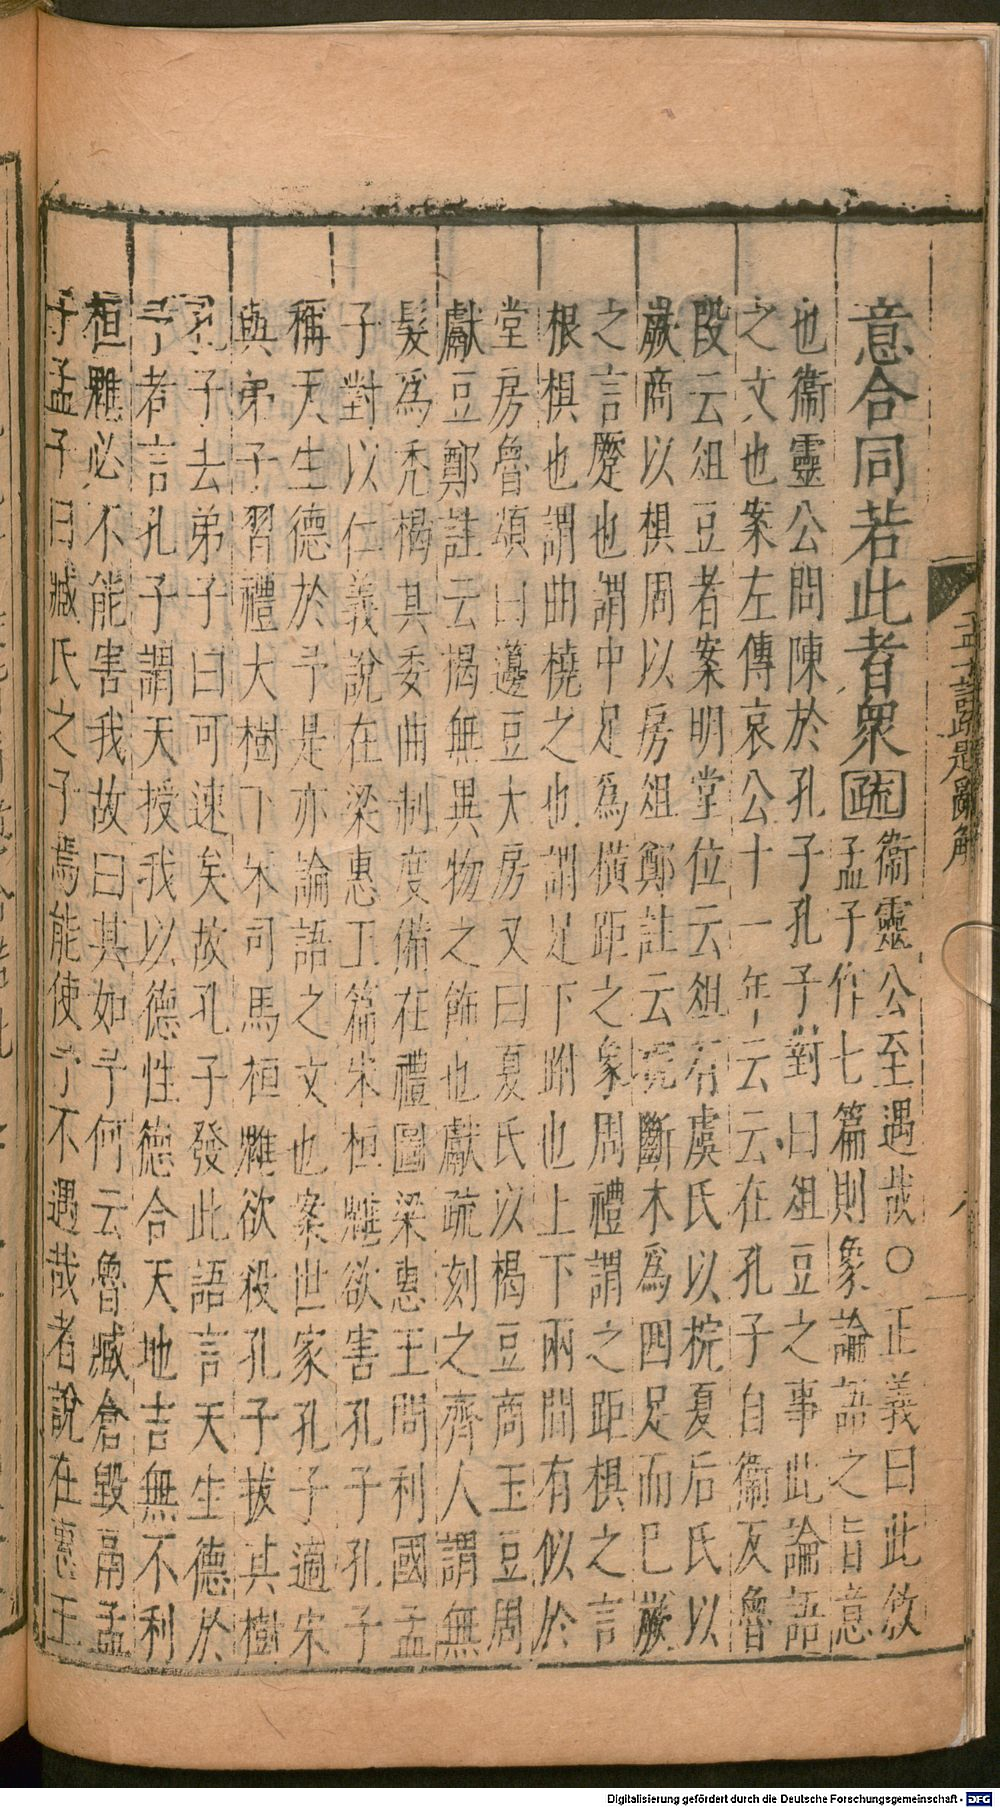 孟子註疏題辭解
八
意合同若此者衆疏
衞靈公至遇哉○正義曰此敘
孟子作七篇則象論語之旨意
也衞靈公問陳於孔子孔子對曰俎豆之事此論語
之文也案左傳哀公十一年云云在孔子自衞反魯
段云俎豆者案明堂位云俎有虞氏以梡夏后氏以
嶡商以椇周以房俎鄭註云梡斷木爲四足而已嶡
之言蹷也謂中足爲橫距之象周禮謂之距椇之言
根椇也謂曲橈之也謂足下跗也上下兩間有似於
堂房魯頌曰籩豆大房又曰夏氏以楬豆商玉豆周
獻豆鄭註云楬無異物之飾也獻疏刻之齊人謂無
髮爲禿楬其委曲制度備在禮圖梁惠王問利國孟
子對以仁義說在梁惠王篇宋桓魋欲害孔子孔子
稱天生德於予是亦論語之文也案世家孔子適宋
與弟子習禮大樹下宋司馬桓魋欲殺孔子拔其樹
孔子去弟子曰可速矣故孔子發此語言天生德於
予者言孔子謂天授我以德性德合天地吉無不利
桓魋必不能害我故曰其如予何云魯臧倉毀鬲孟
子孟子曰臧氏之子焉能使予不遇哉者說在惠王
Digitalisierung gefördert durch die Deutsche Forschungsgemeinschaft - DFG